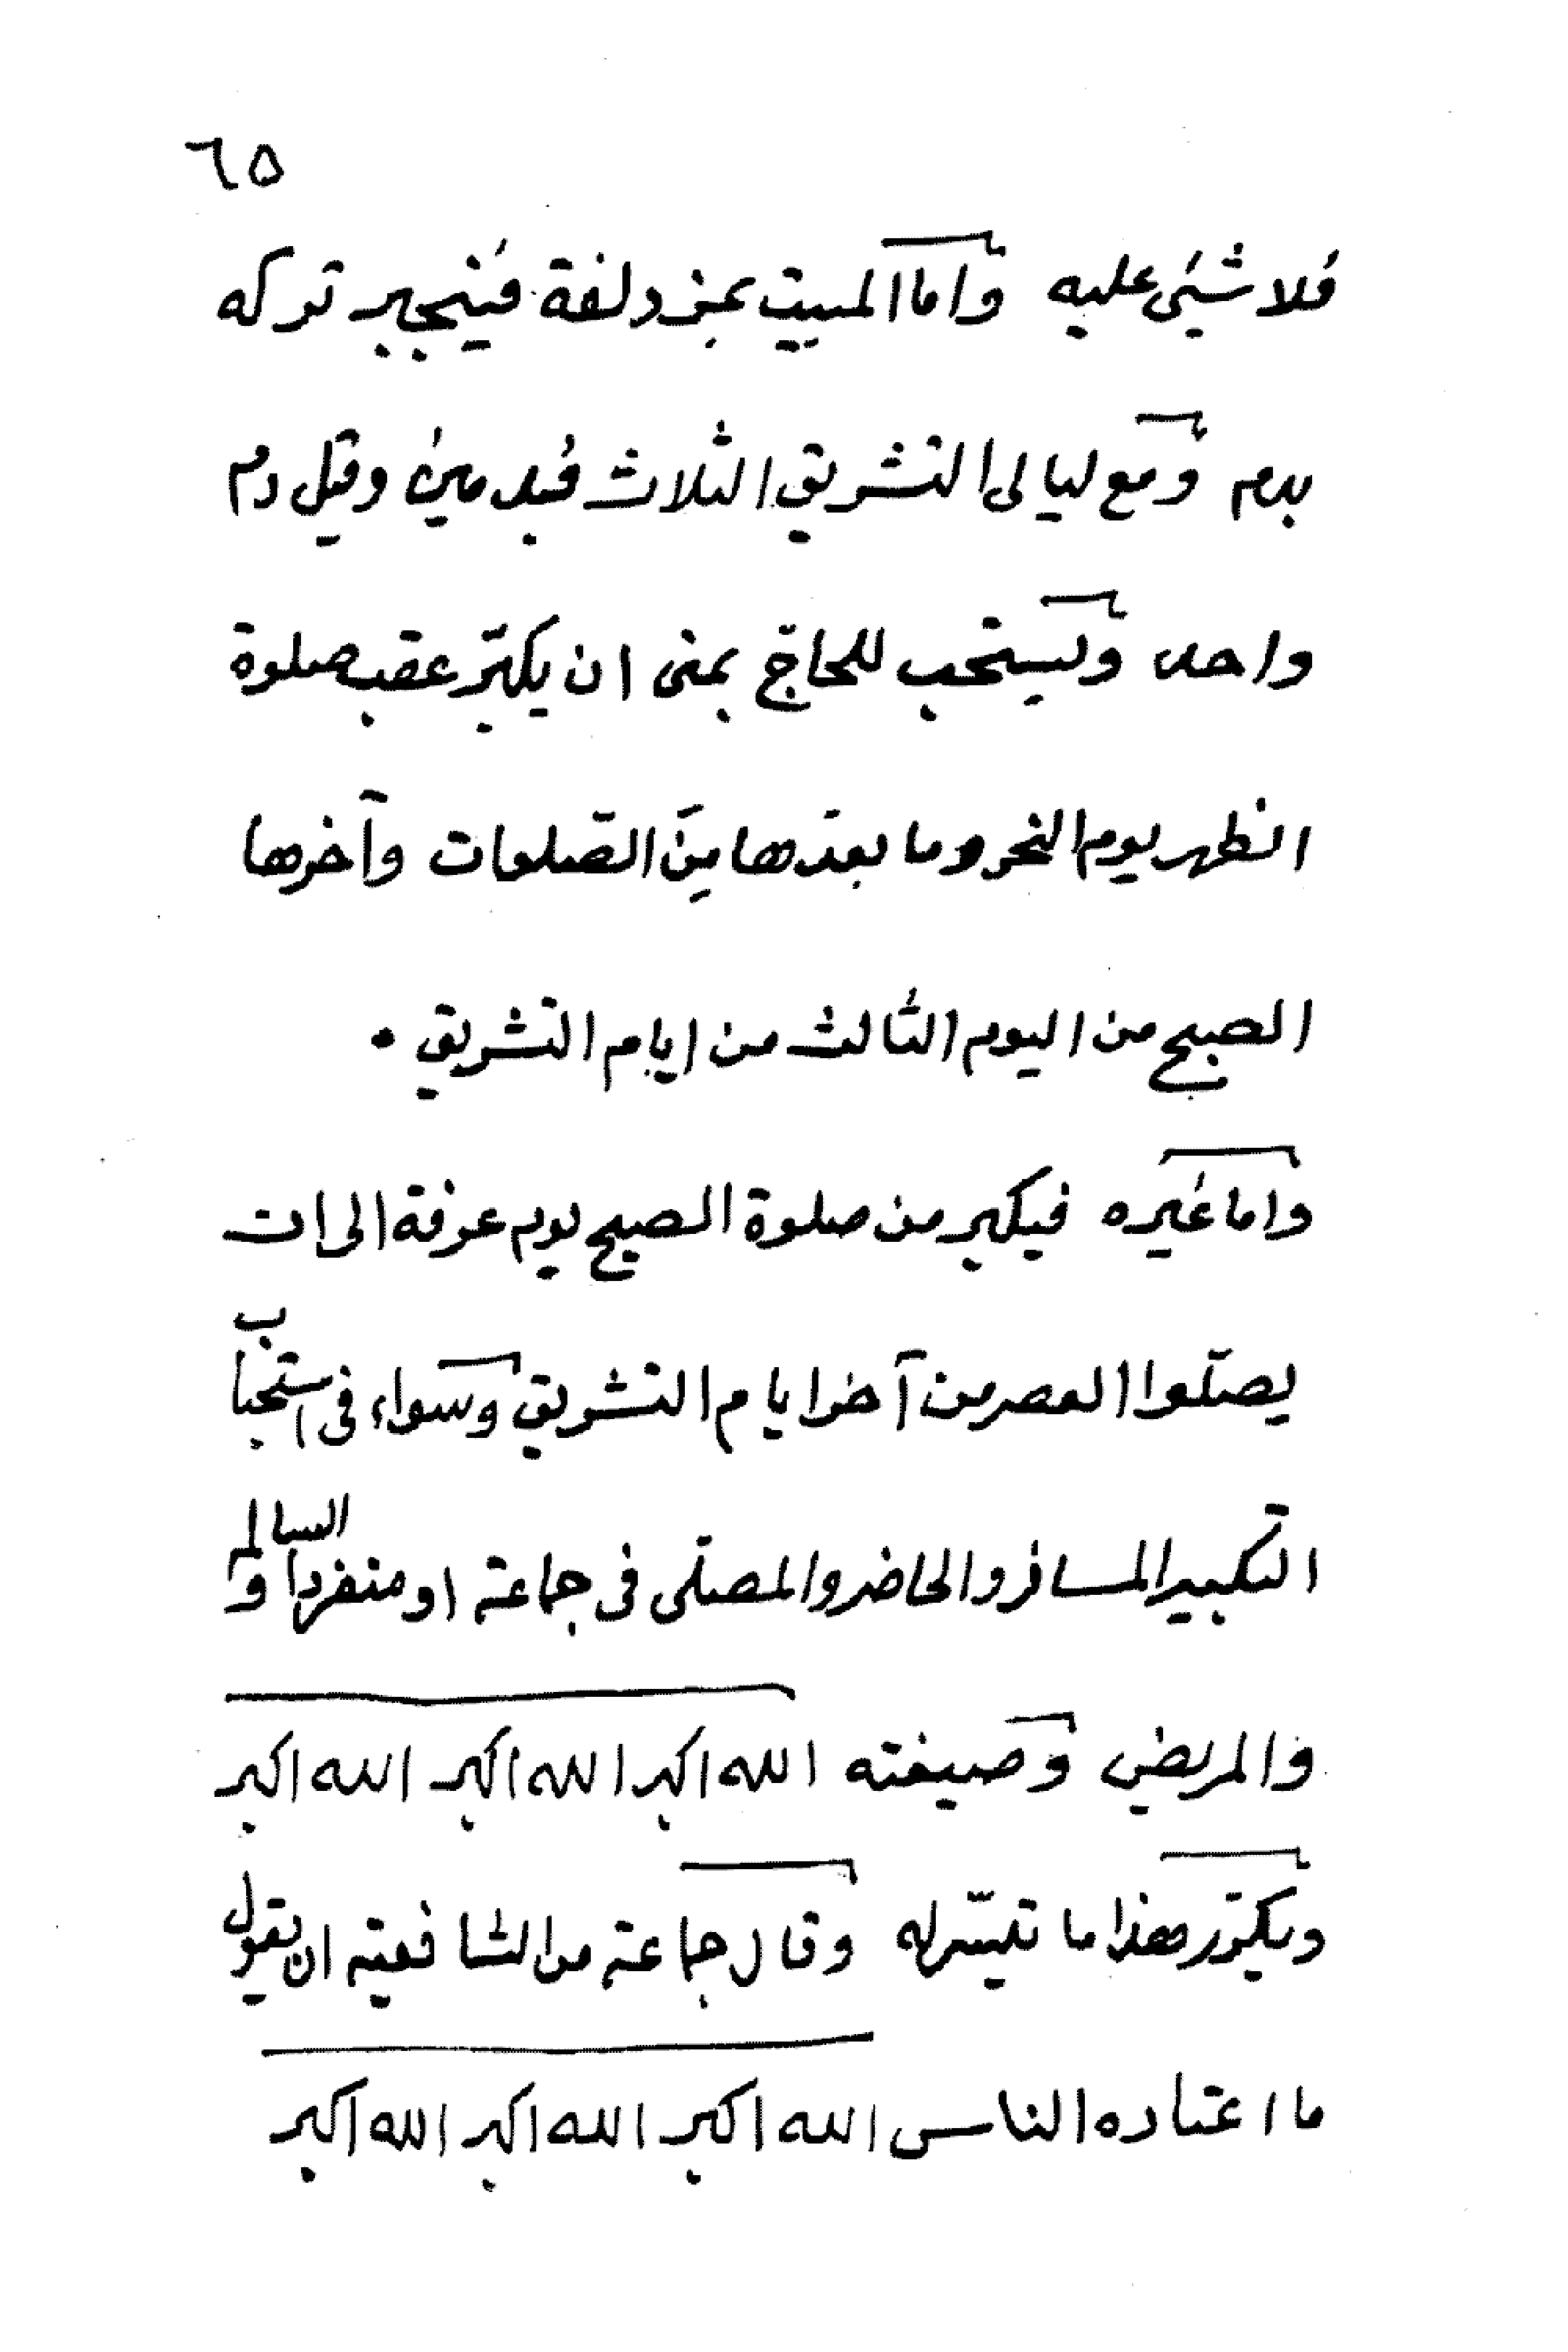 ٦٥
فلا شيئ عليه واما المبيت بمزدلفة فينجبر تركه
بدم ومع ليالى التشريق الثلاث فبدمين وقيل دم
واحد ويستحب للحاجّ بمنى ان يكبّر عقب صلوة
الظهر يوم النحر وما بعدَها مِنَ الصّلوات وآخرها
الصبح من اليوم الثالث من ايام التشريق ٠
واما غيره فيكبر من صلوة الصبح يوم عرفة الى ان
يصلّوا العصر من آخر ايام التشريق وسواء فى استحباب
التكبير المسافر والحاضر والمصلّى فى جماعة او منفردا والسالم
والمريض وصيغته الله اكبر الله اكبر الله اكبر
ويكرّر هذا ما تيسّر له وقال جماعة من الشافعية ان يقول
ما اعتاده الناس الله اكبر الله اكبر الله اكبر